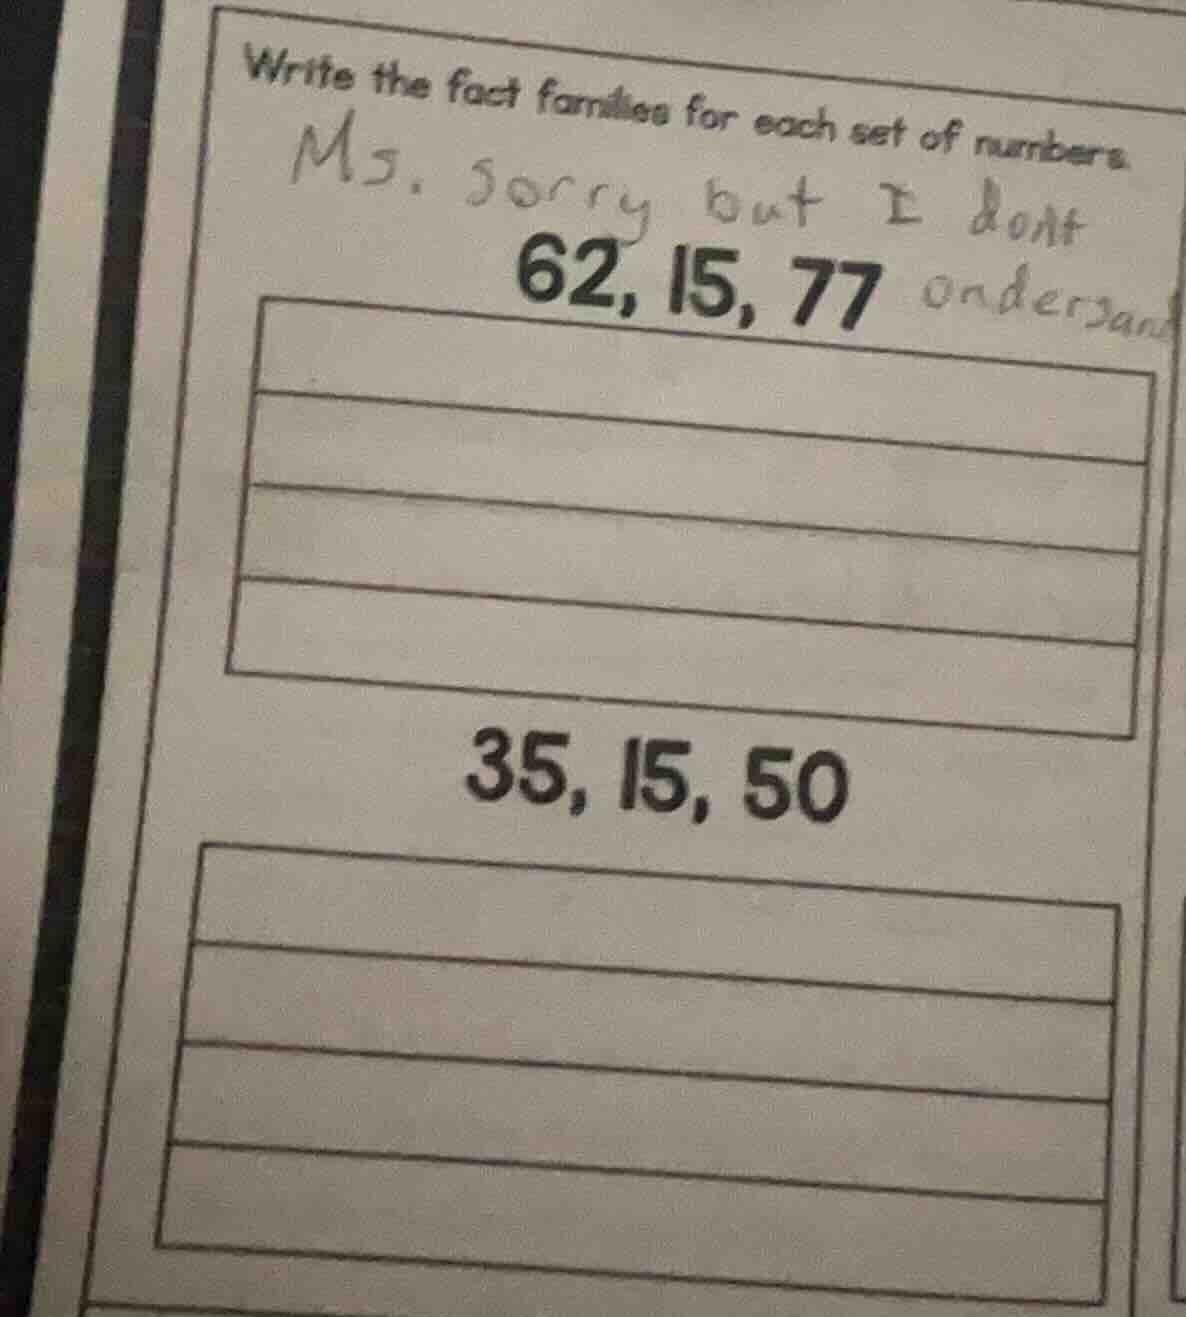 Write the fact families for each set of numbers.
Ms. sorry but I dont
62, 15, 77 ondersand
35, 15, 50